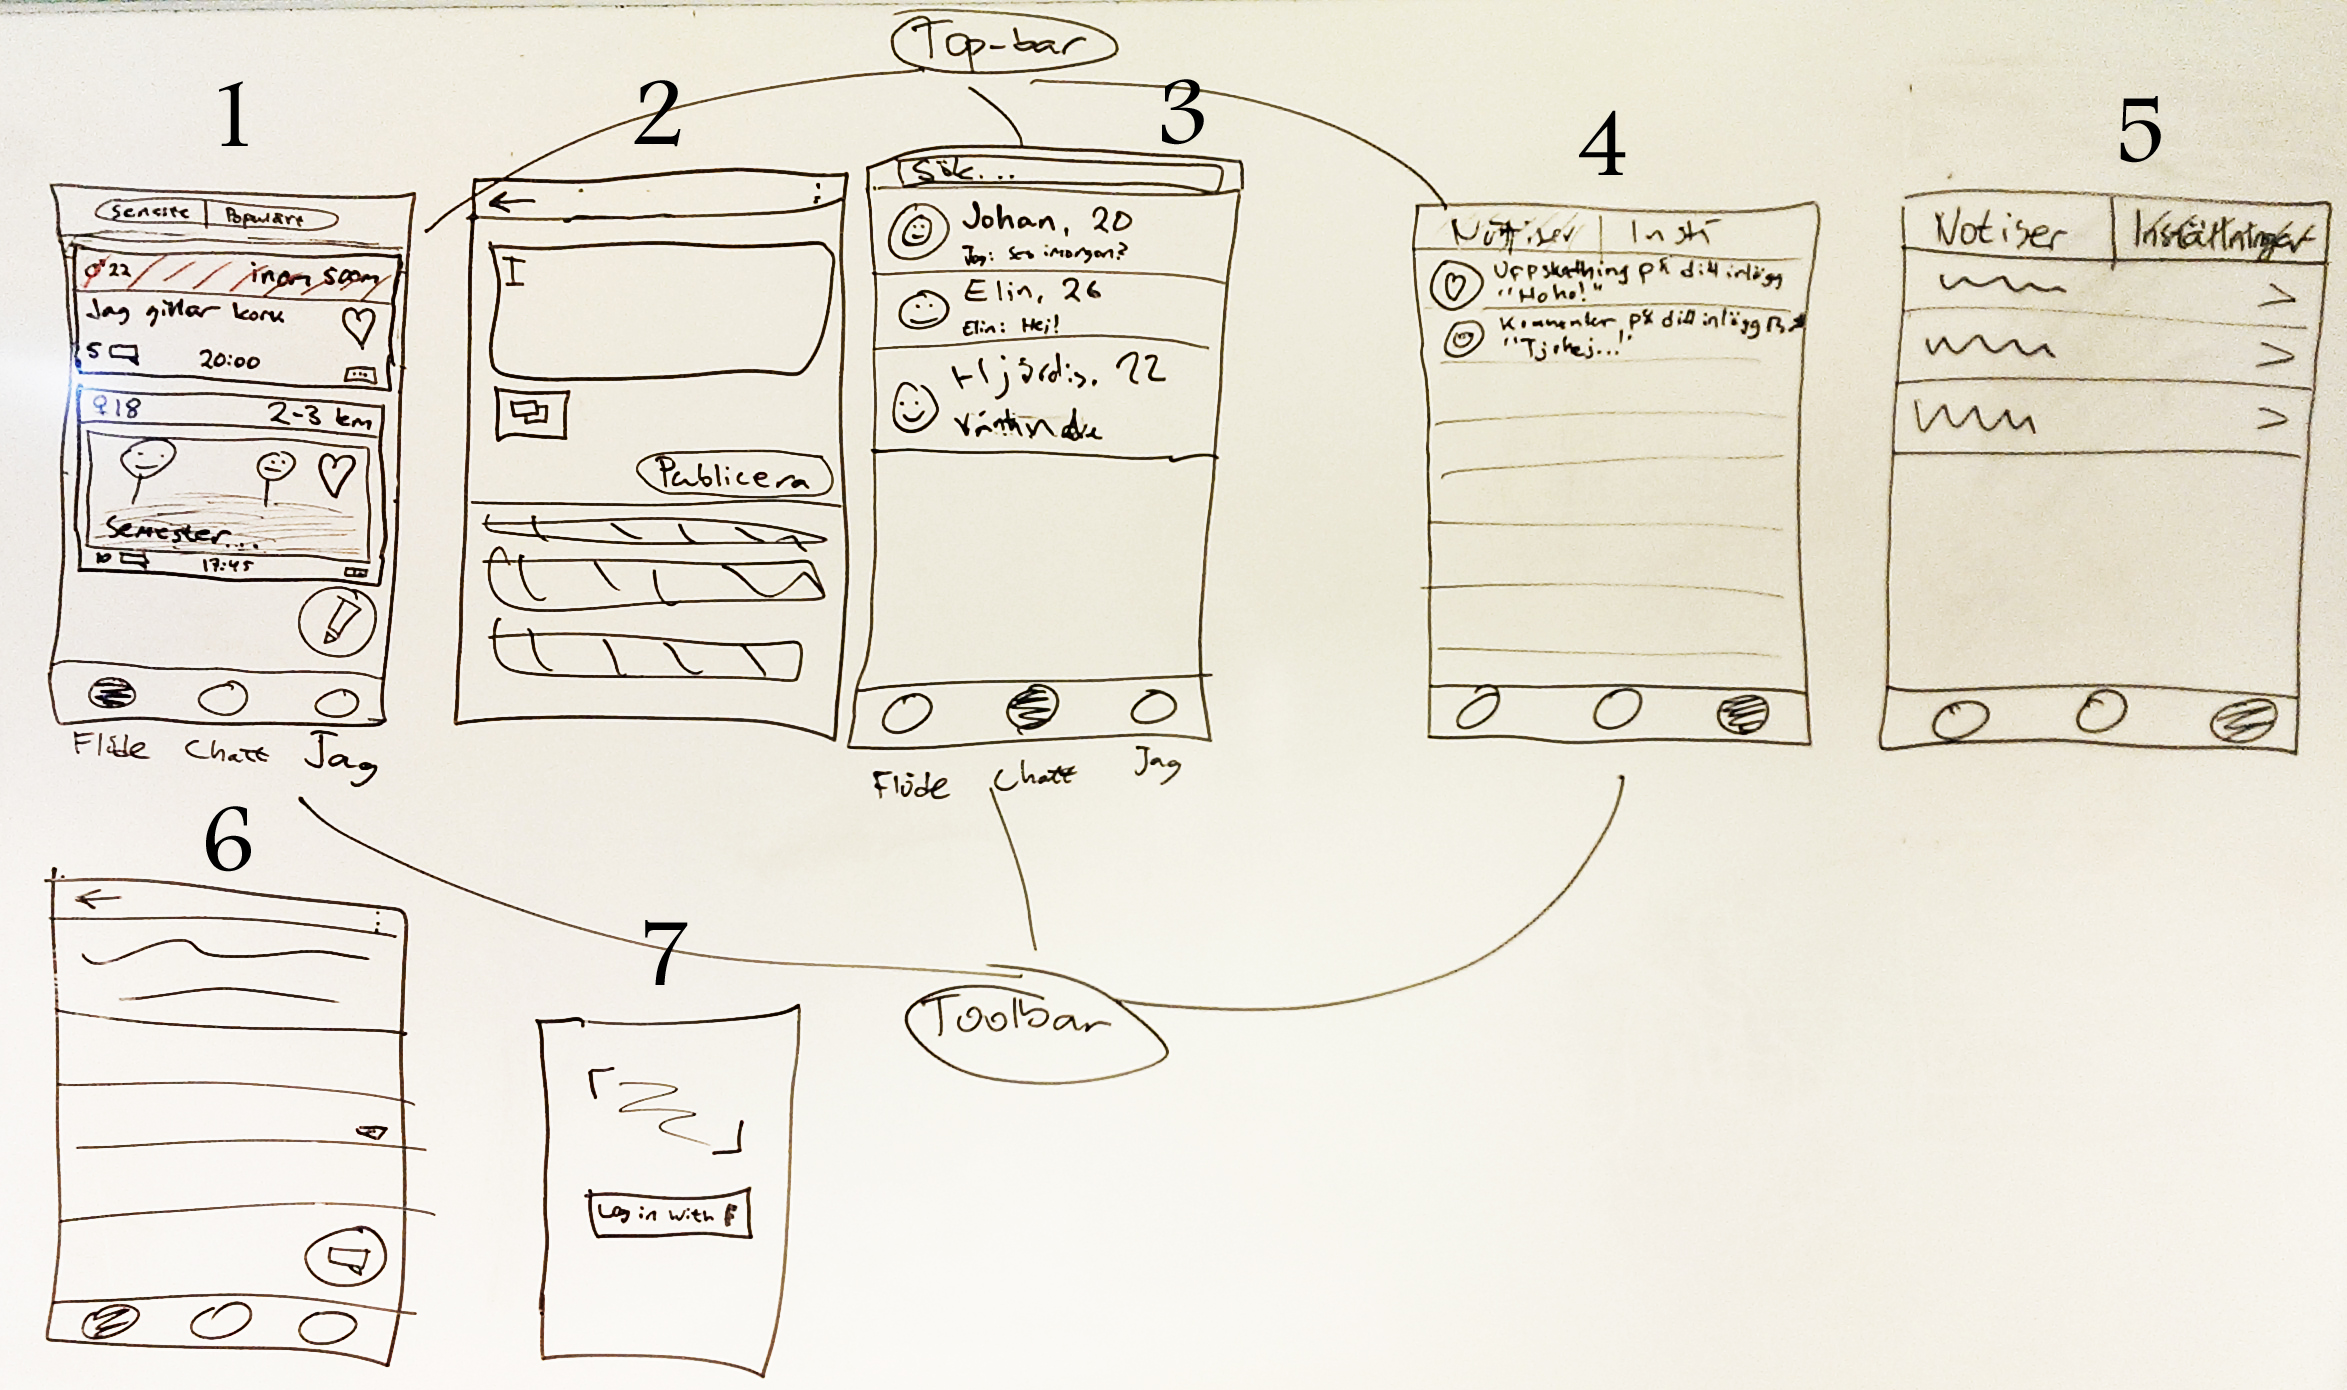 Top-bar
1
2
3
4
5
Senaste | Populärt
♂22 inom 500m
Jag gillar korv
5 20:00
♀18 2-3 km
Semester...
10 17:45
Flöde Chatt Jag
I
Publicera
Sök...
Johan, 20
Jag: Ses imorgon?
Elin, 26
Elin: Hej!
Hjördis, 22
Flöde Chatt Jag
Notiser | Instä
Uppskattning på ditt inlägg
"Hoho!"
Kommentar på ditt inlägg
"Tjohej..."
Notiser | Inställningar
6
7
Log in with F
Toolbar